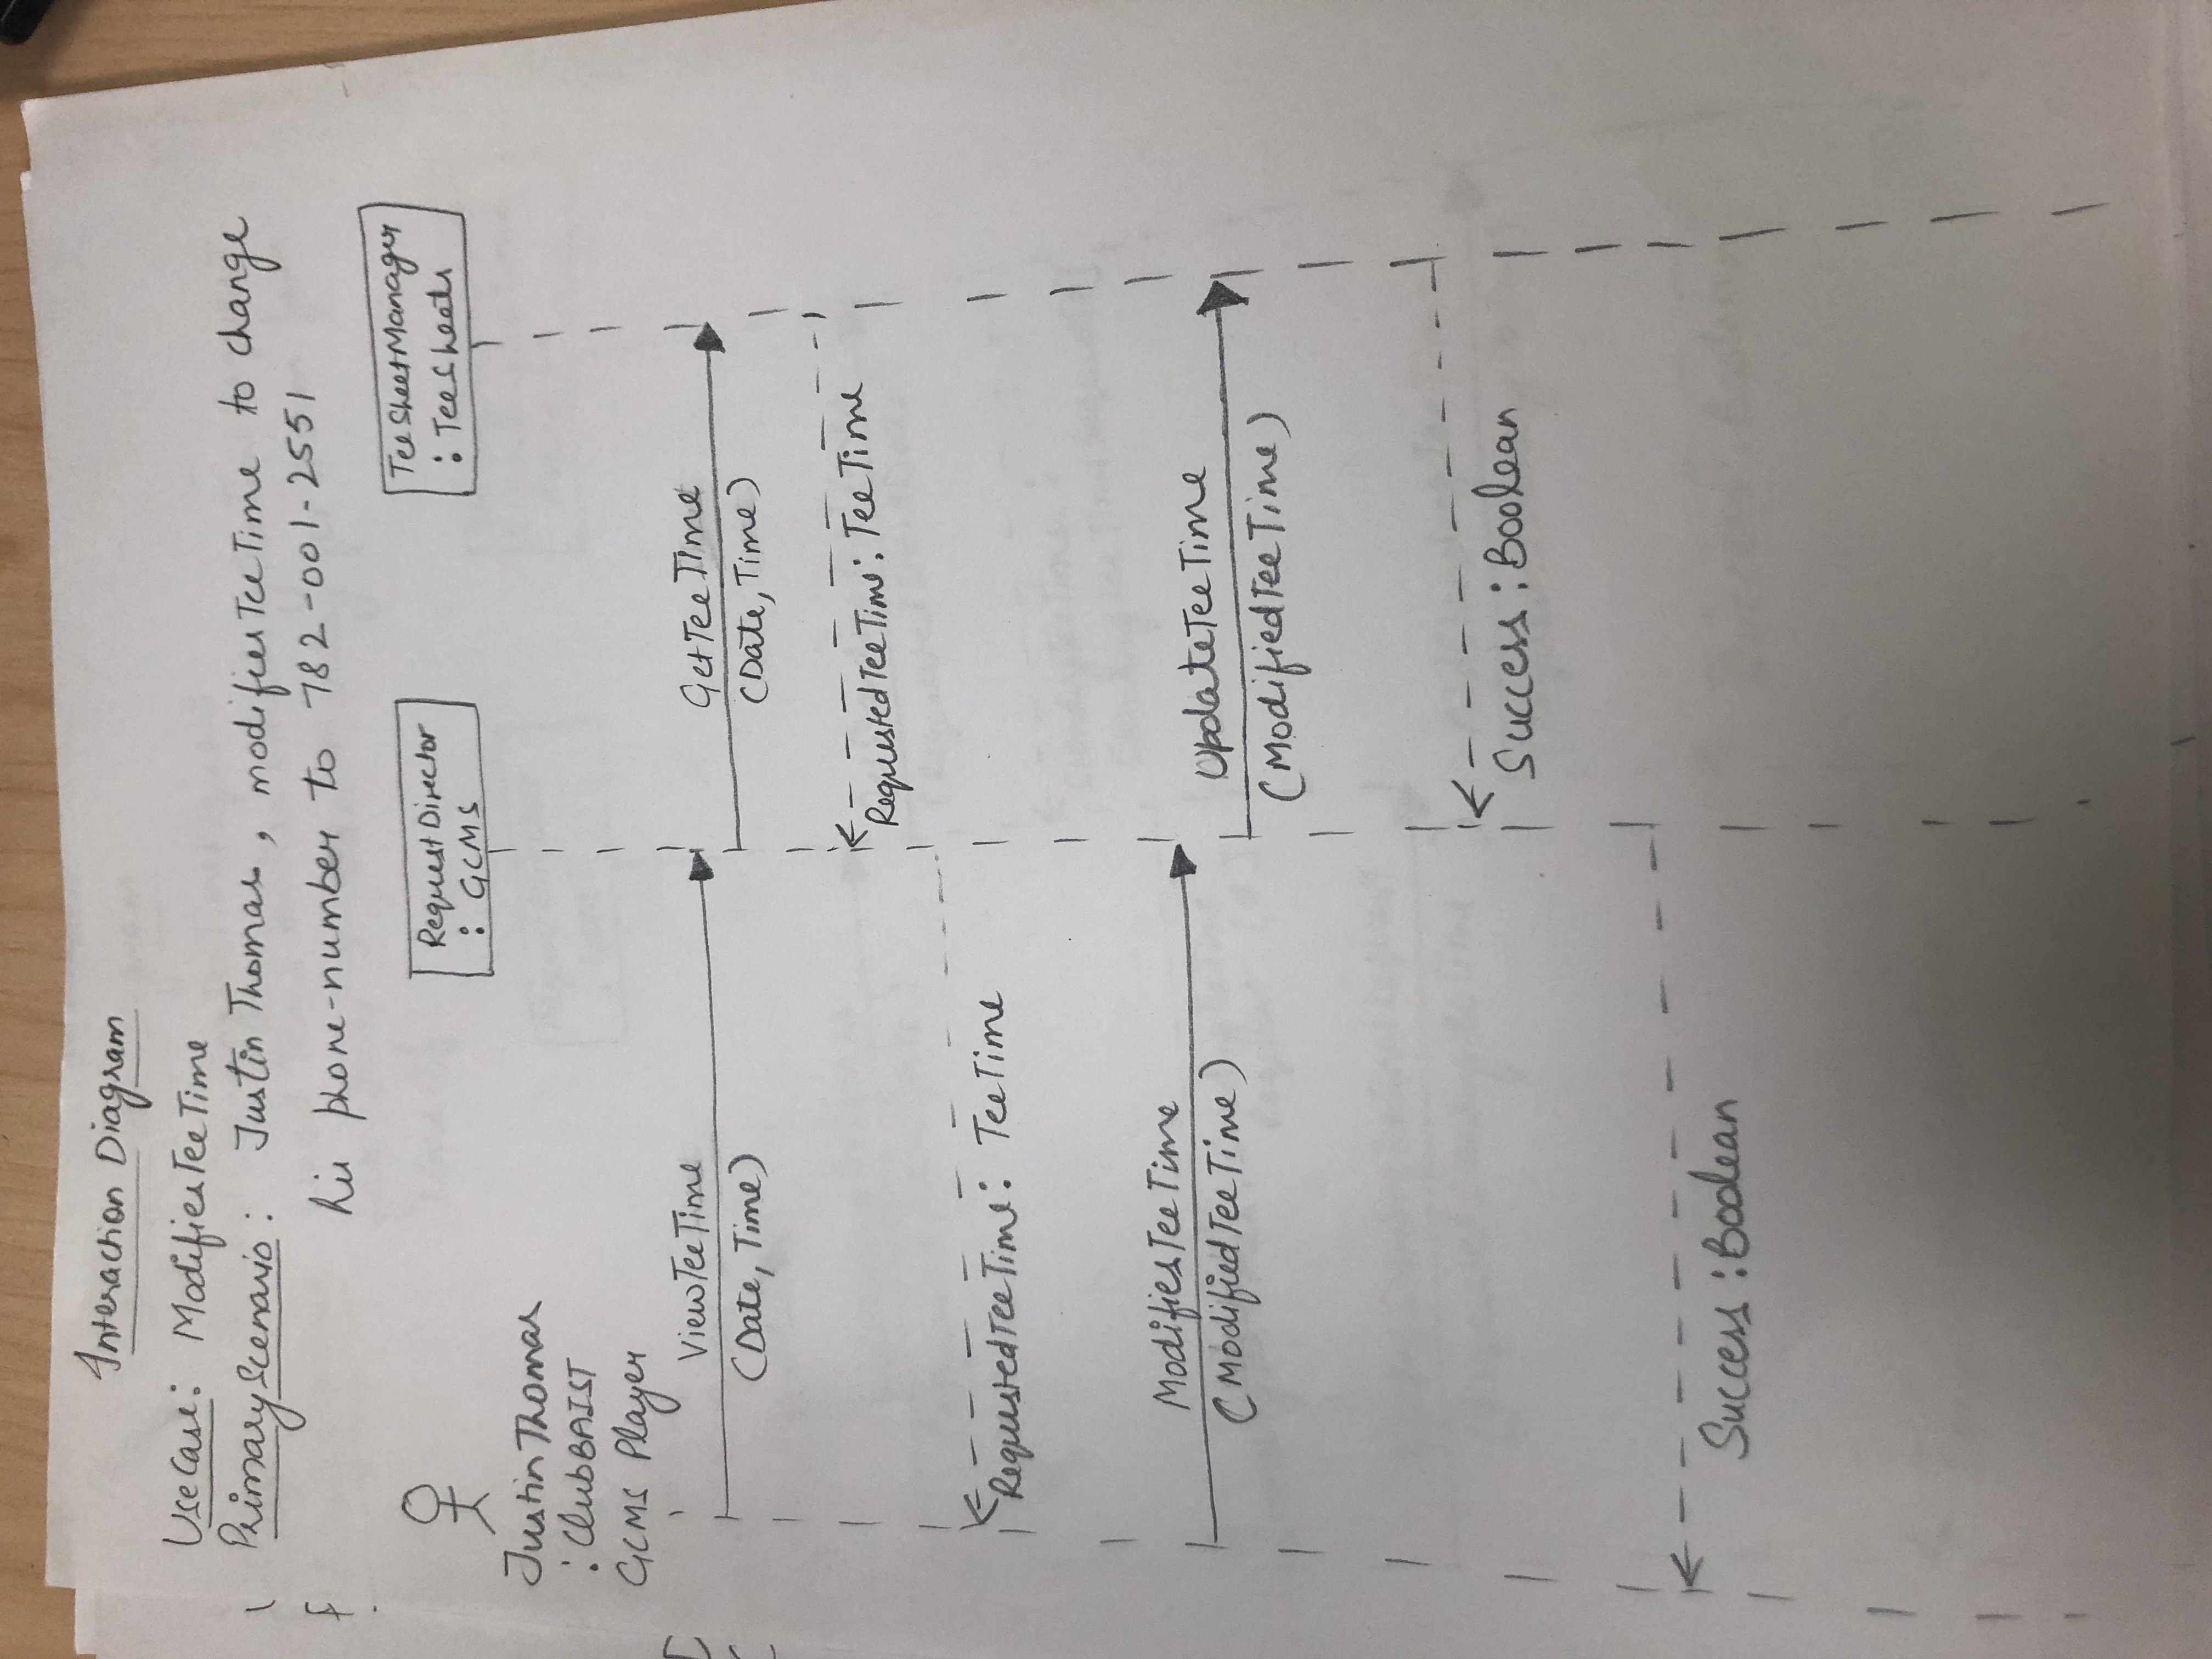 Interaction Diagram
UseCase: ModifiesTeeTime
PrimaryScenario: Justin Thomas, modifiesTeeTime to change
his phone-number to 782-001-2551
RequestDirector
: GCMS
TeeSheetManager
: TeeSheets
Justin Thomas
: ClubBAIST
GCMS Player
ViewTeeTime
(Date, Time)
GetTeeTime
(Date, Time)
RequestedTeeTime: TeeTime
RequestedTeeTime: TeeTime
ModifiesTeeTime
(ModifiedTeeTime)
UpdateTeeTime
(ModifiedTeeTime)
Success: Boolean
Success: Boolean